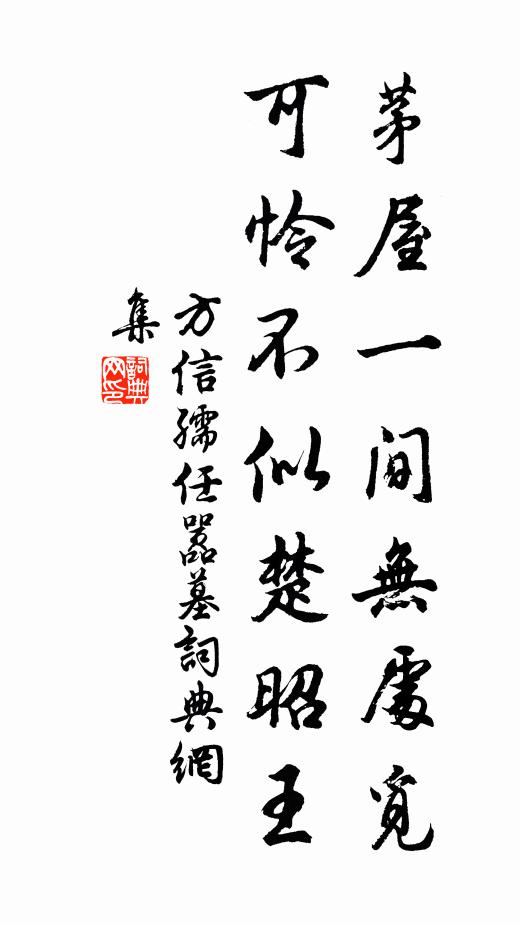 茅屋一間無處覓
可憐不似楚昭王
方信孺任囂墓詞典網
集
詞典
网印